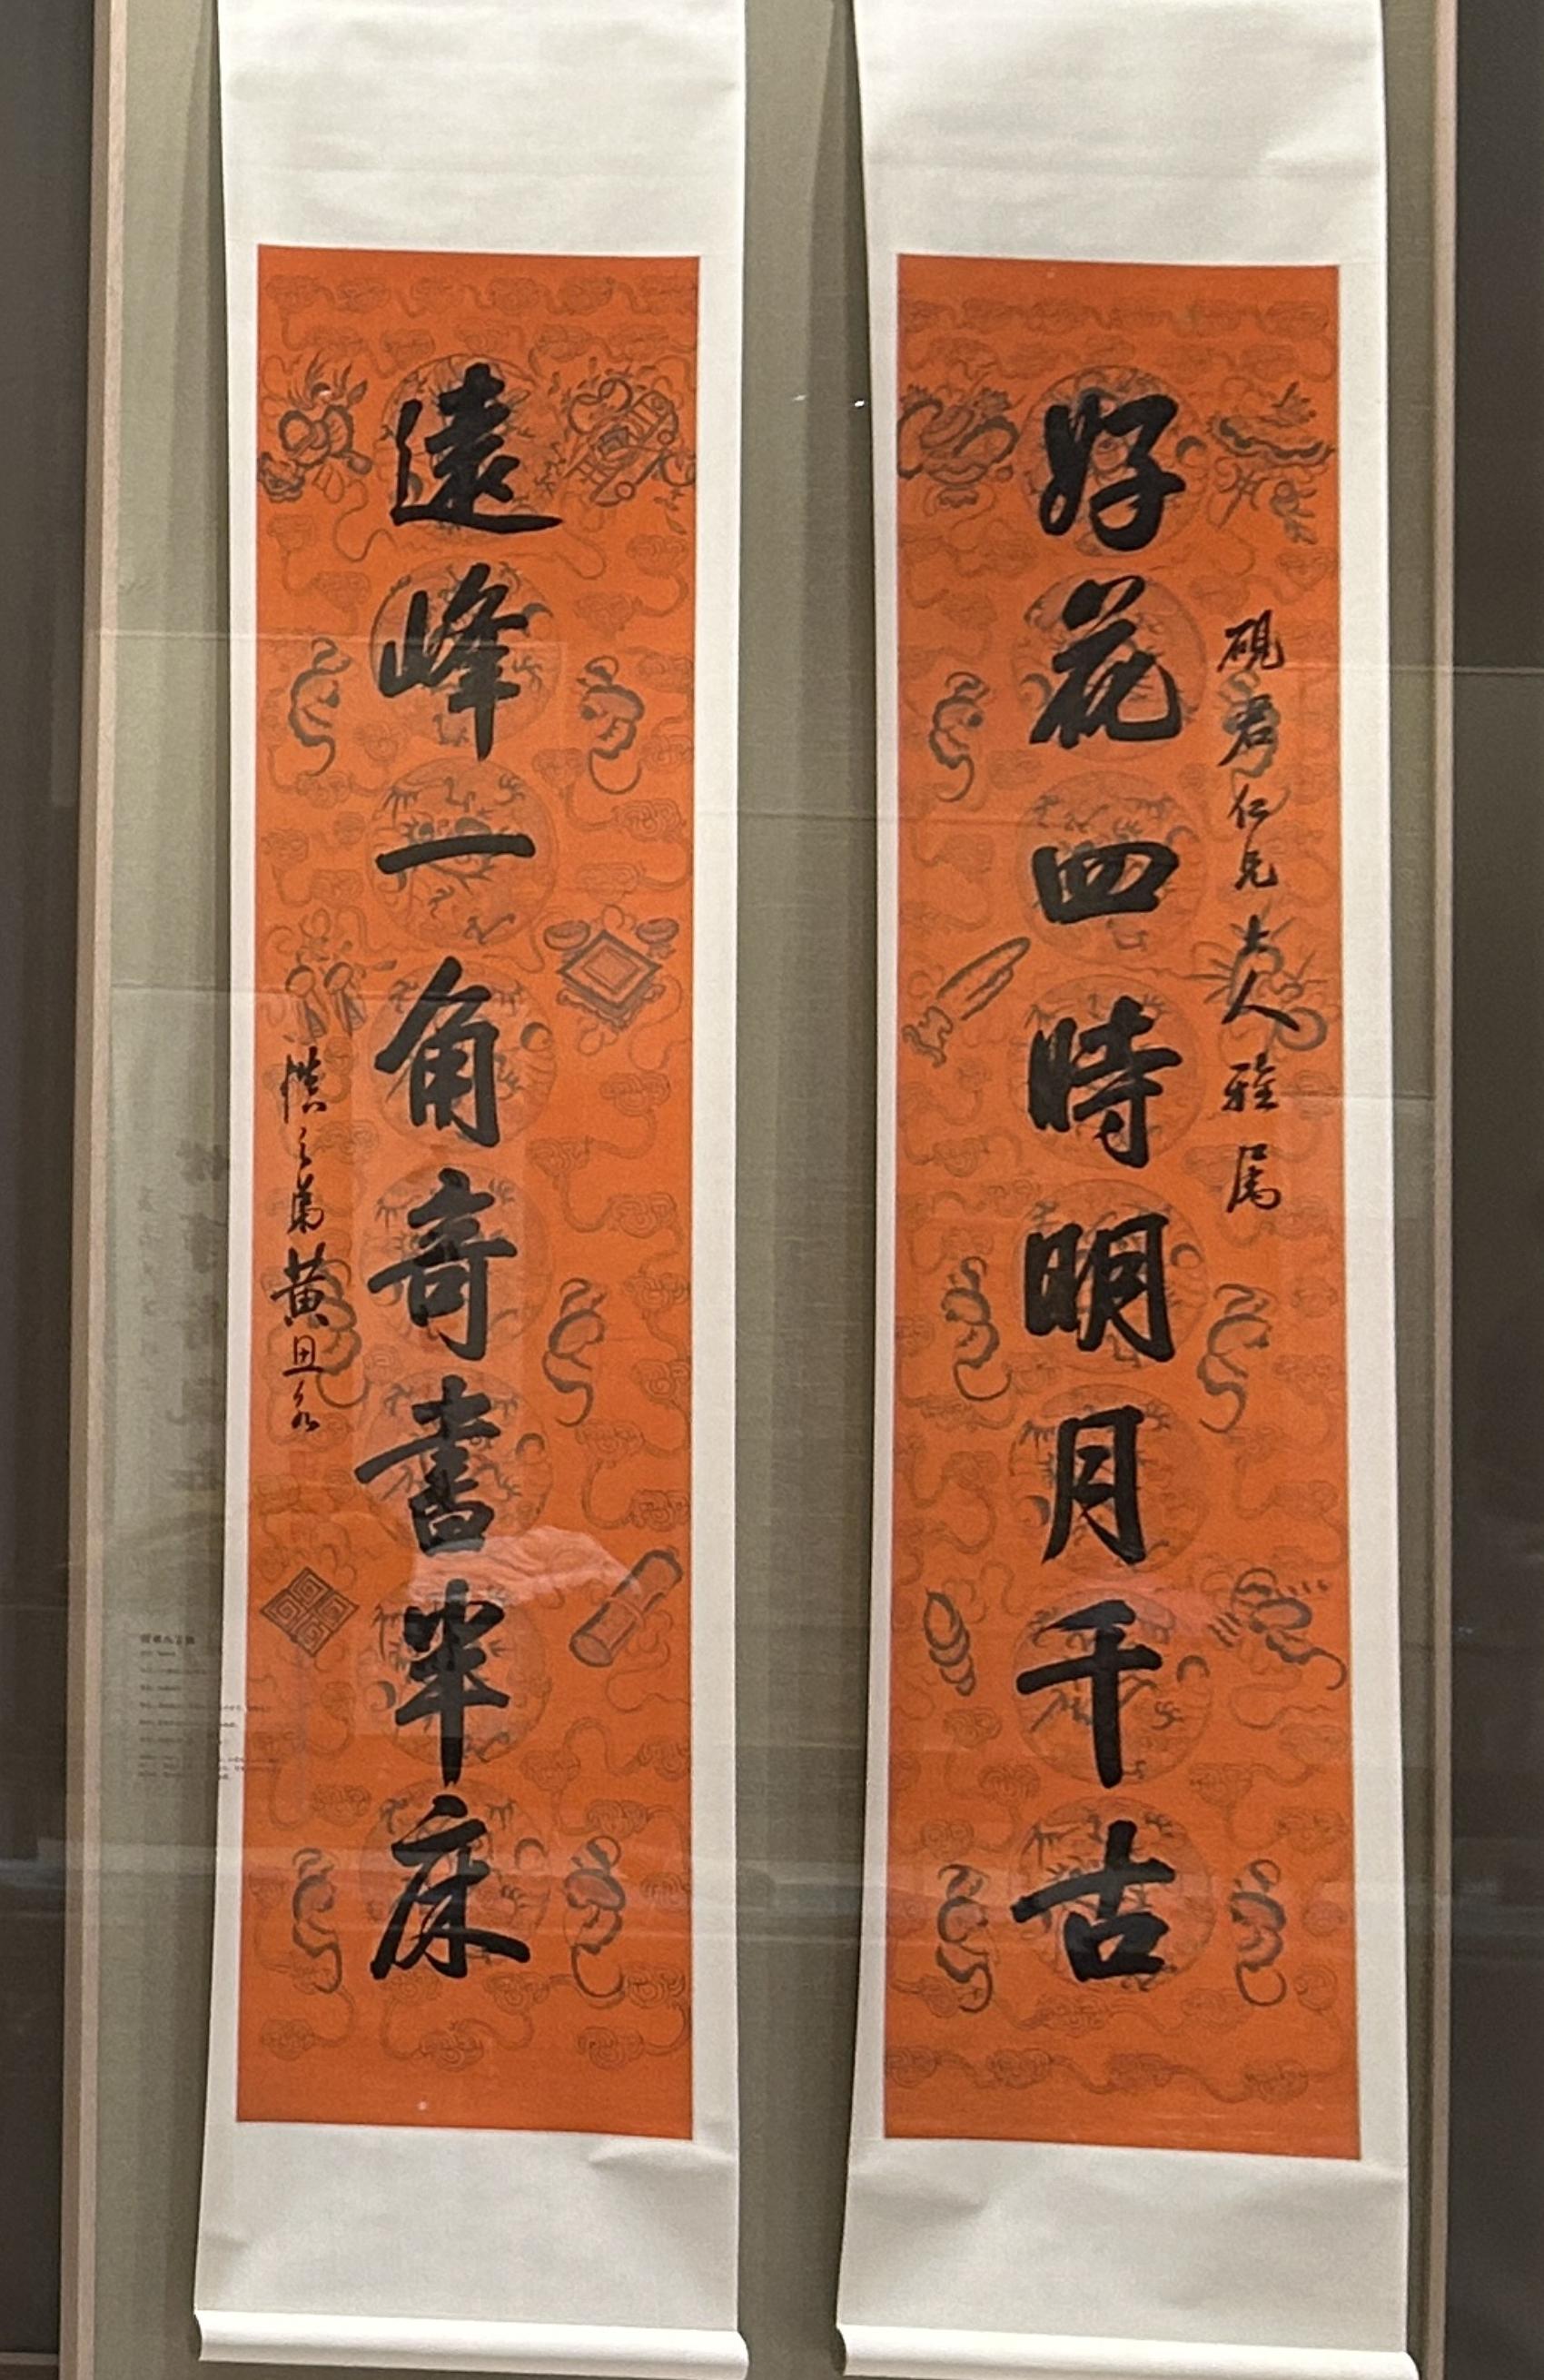 好花四時明月千古
硯君仁兄大人雅属
遠峰一角奇書半床
慎之弟黄思永